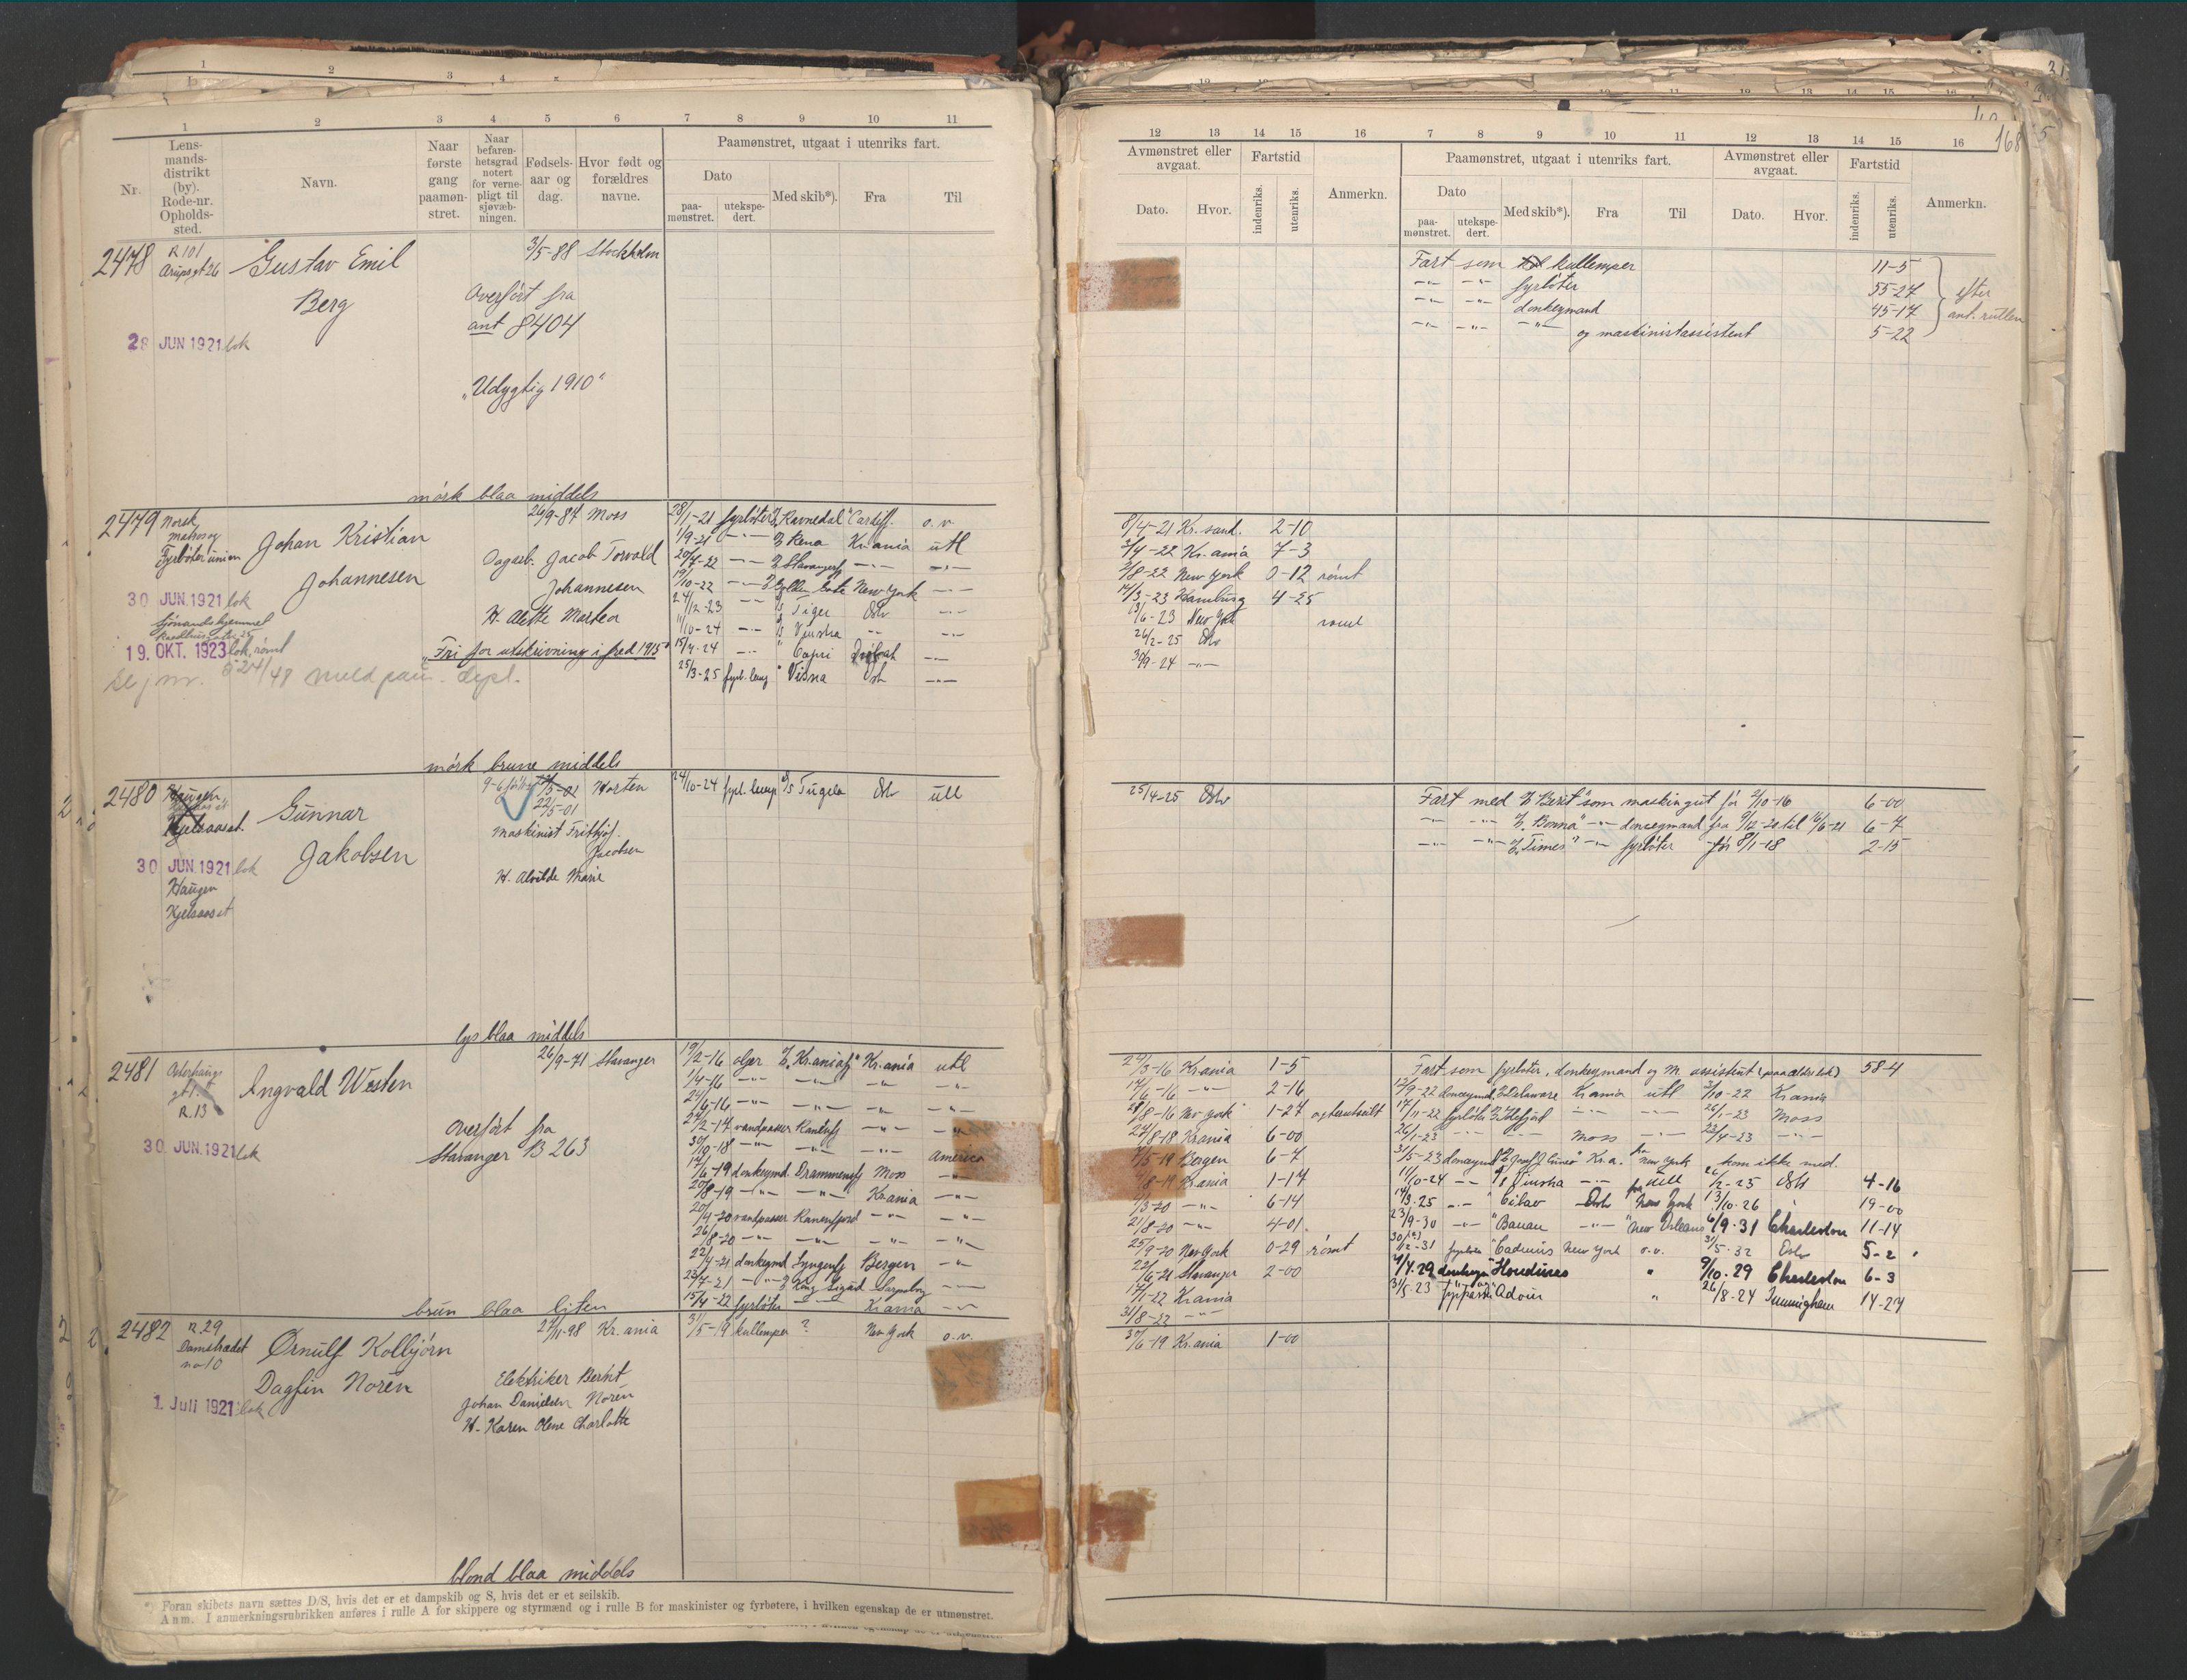 1 2 3 4 5 6 7 8 9 10 11
Nr.
Lens-mands-distrikt (by). Rode-nr. Opholds-sted.
Navn.
Naar første gang paamøn-stret.
Naar befaren-hetsgrad notert for verne-pligt til sjøvæb-ningen.
Fødsels-aar og dag.
Hvor født og forældres navne.
Paamønstret, utgaat i utenriks fart.
Dato
paa-mønstret.
utekspe-dert.
Med skib*).
Fra
Til
2478 R 101 Gustav Emil 3/5-88 Stockholm
Arupsgt 26
Berg
Overført fra
ant 8404
28 JUN 1921 lok
"Udygtig 1910"
mørk blaa middels
2479 Norsk Johan Kristian 26/9-87 Moss
Matros og
Fyrbøter union
Johannesen
Dagarb. Jacob Torvald
Johannesen
30 JUN. 1921 lok
H. Alette Martea
19. OKT. 1923 lok, rømt
"Fri for utskrivning i fred 1915"
28/1-21 fyrbøter Ravnedal Cardiff. o.v.
1/9-21 -"- Rena Kr.ania utl
20/7-22 -"- Stavangerfj -"- -"-
19/10-22 -"- New York -"-
24/12-23 -"- Tiger Oslo -"-
11/10-24 -"- Vinstra -"- -"-
15/4-24 -"- Capri -"-
25/3-25 Visna -"-
mørk brune middels
2480 Haugen, Gunnar 22/5-01 Horten
Kjelsaas st.
Jakobsen
Maskinist Frithjof
Jacobsen
30 JUN 1921 lok
H. Alvilde Marie
Haugen
Kjelsaas st
24/10-24 fyrb. lemp D/S Tugela Oslo utl
lys blaa middels
2481 Osterhaugs Ingvald Westen 26/9-71 Stavanger
R. 13
Overført fra
Stavanger B 263
30 JUN. 1921 lok
19/2-16 oljer Kr.aniafj Kr.ania utl
1/4-16 -"- -"- -"- -"-
24/6-16 -"- -"- -"- -"-
vandpasser Ranenfj -"- -"-
30/9-18 -"- -"- -"- America
17/6-19 donkeymd Drammensfj Moss -"-
20/8-19 -"- -"- Kr.ania -"-
20/4-20 vandpasser Ranenfjord -"- -"-
26/8-20 -"- -"- -"- -"-
22/4-21 donkeymd Lyngenfj Bergen -"-
22/7-21 -"- King Sigurd Sarpsborg -"-
15/4-22 fyrbøter -"- Kr.ania -"-
brun blaa liten
2482 R. 29 Ørnulf Kolbjørn 27/11-98 Kr.ania
Damstrædet
no 10
Dagfin Noren
Elektriker Bernt
Johan Danielsen Noren
1. Juli 1921 lok
H. Karen Olene Charlotte
31/5-19 kullemper ? New York o.v.
blond blaa middels
*) Foran skibets navn sættes D/S, hvis det er et dampskib og S, hvis det er et seilskib.
Anm. I anmerkningsrubrikken anføres i rulle A for skippere og styrmænd og i rulle B for maskinister og fyrbøtere, i hvilken egenskap de er utmønstret.
168
12 13 14 15 16 7 8 9 10 11 12 13 14 15 16
Avmønstret eller avgaat.
Dato. Hvor.
Fartstid
indenriks. utenriks.
Anmerkn.
Paamønstret, utgaat i utenriks fart.
Dato
paa-mønstret. utekspe-dert.
Med skib*). Fra Til
Avmønstret eller avgaat.
Dato. Hvor.
Fartstid
indenriks. utenriks.
Anmerkn.
Fart som kullemper 11-5
-"- -"- fyrbøter 55-27 efter
-"- -"- donkeymand 45-17 ant. rullen
-"- -"- -"- og maskinistassistent 5-22
8/4-21 Kr.sand. 2-10
3/4-22 Kr.ania 7-3
2/8-22 New York 0-12 rømt
14/3-23 Hamburg 4-25
13/6-23 New York rømt
26/2-25 Oslo
30/9-24 -"-
25/4-25 Oslo
Fart med "Berit" som maskingut før 2/10-16 6-00
-"- -"- "Bonna" -"- donkeymand fra 9/12-20 til 16/6-21 6-7
-"- -"- "Times" -"- fyrbøter før 8/1-18 2-15
29/3-16 Kr.ania 1-5
17/6-16 -"- 2-16
28/8-16 New York 1-27 agterutseilt
24/8-18 Kr.ania 6-00
Bergen 6-7
Kr.ania 1-14
-"- 6-14
21/8-20 -"- 4-01
25/9-20 New York 0-29 rømt
22/6-21 Stavanger 2-00
Kr.ania
31/8-22 -"-
Fart som fyrbøter, donkeymand og M. assistent (paa ældre blad) 58-4
12/9-22 donkeymd Delaware Kr.ania utl 3/10-22 Kr.ania
17/11-22 fyrbøter Idefjord -"- -"- 26/1-23 Moss
26/1-23 -"- -"- Moss -"- 23/4-23 -"-
31/5-23 donkeymd Kr.a. New York kom ikke med.
11/10-24 -"- Vinstra -"- utl 26/2-25 Oslo 4-16
14/3-25 -"- Oslo New York 13/10-26 19-00
23/9-30 -"- -"- New Orleans 6/9-31 Charleston 11-14
12-31 fyrbøter Cadmus New York o.v. 31/5-32 Oslo 5-2
4/4.29 Honduras " 9/10.29 Charleston 6-3
31/5-23 26/8-24 Immingham 14-27
30/6-19 Kr.ania 1-00